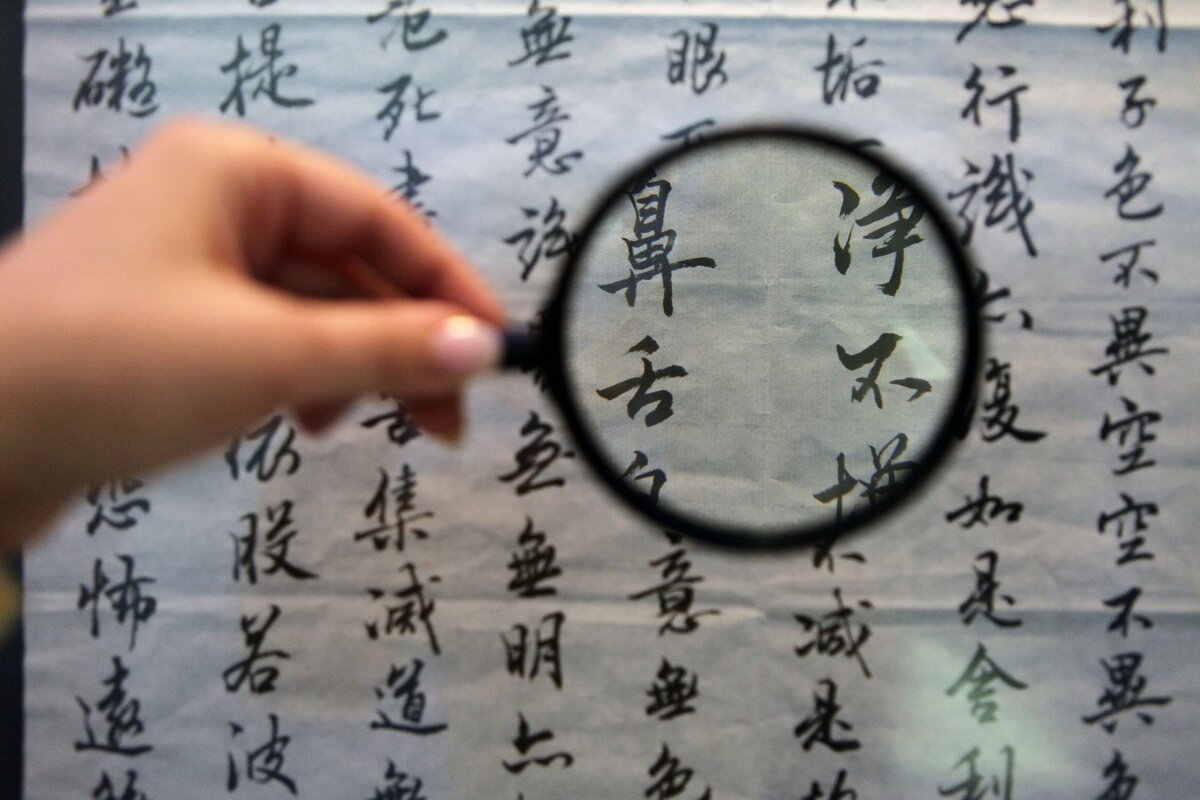 利子色不異空空不異色
想行識亦復如是舍利
垢不淨不增不減是故
眼耳鼻舌身意無色
無意識無無明亦
死盡苦集滅道無
提依般若波
礙恐怖遠離